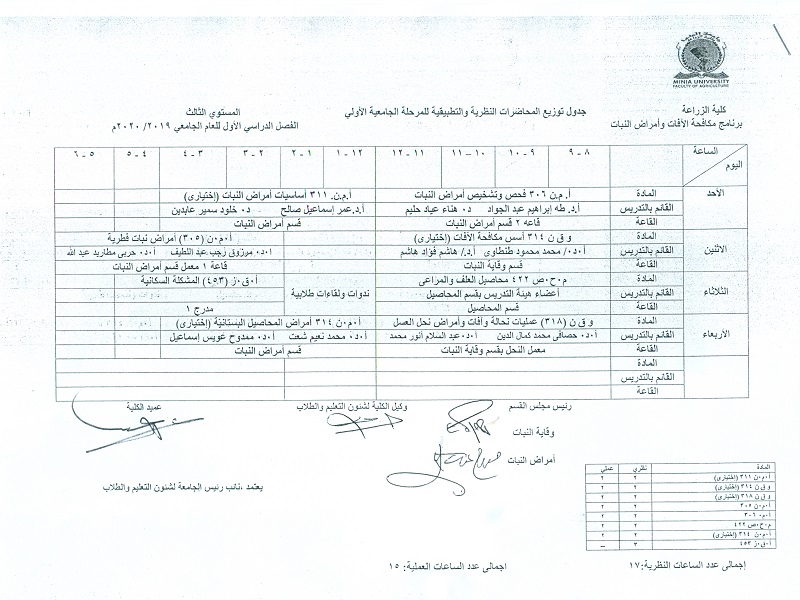 MINIA UNIVERSITY
FACULTY OF AGRICULTURE
كلية الزراعة
برنامج مكافحة الآفات وأمراض النبات
جدول توزيع المحاضرات النظرية والتطبيقية للمرحلة الجامعية الأولي
المستوي الثالث
الفصل الدراسي الأول للعام الجامعي ٢٠١٩/ ٢٠٢٠م
الساعة
اليوم
٨ - ٩ ٩ - ١٠ ١٠ - ١١ ١١ - ١٢ ١٢-١ ١-٢ ٢-٣ ٣-٤ ٤-٥ ٥-٦
الأحد
المادة أ.م.ن ٣٠٦ فحص وتشخيص أمراض النبات أ.م.ن. ٣١١ أساسيات أمراض النبات (إختيارى)
القائم بالتدريس أ.د. طه إبراهيم عبد الجواد د٠ هناء عياد حليم أ.د.عمر إسماعيل صالح د٠ خلود سمير عابدين
القاعة قاعة ٢ قسم أمراض النبات قسم أمراض النبات
الاثنين
المادة و ق ن ٣١٤ أسس مكافحة الآفات (إختيارى) أ٠م٠ن (٣٠٥) أمراض نبات فطرية
القائم بالتدريس أ٠د/٠ محمد محمود طنطاوى أ.د/٠ هاشم فؤاد هاشم أ٠د٠ مرزوق رجب عبد اللطيف أ٠د٠ حربى مطاريد عبد الله
القاعة قسم وقاية النبات قاعة ١ معمل قسم أمراض النبات
الثلاثاء
المادة م٠ح٠ص ٤٢٢ محاصيل العلف والمراعى أ٠ق٠ز (٤٥٣) المشكلة السكانية
القائم بالتدريس أعضاء هيئة التدريس بقسم المحاصيل ندوات ولقاءات طلابية
القاعة قسم المحاصيل مدرج ١
الأربعاء
المادة و ق ن (٣١٨) عمليات نحالة وآفات وأمراض نحل العسل أ٠م٠ن ٣١٤ أمراض المحاصيل البستانية (إختيارى)
القائم بالتدريس أ٠د٠ حصافى محمد كمال الدين أ٠د٠ عبد السلام أنور محمد أ٠د٠ محمد نعيم شعت أ٠د٠ ممدوح عويس إسماعيل
القاعة معمل النحل بقسم وقاية النبات قسم أمراض النبات
المادة
القائم بالتدريس
القاعة
رئيس مجلس القسم وكيل الكلية لشئون التعليم والطلاب عميد الكلية
وقاية النبات
أمراض النبات
يعتمد ،نائب رئيس الجامعة لشئون التعليم والطلاب
المادة نظري عملي
أ٠م٠ن ٣١١ (إختيارى) ٢ ٢
و ق ن ٣١٤ (إختيارى) ٢ ٢
و ق ن ٣١٨ (إختيارى) ٢ ٢
أ٠م٠ن ٣٠٥ ٢ ٢
أ٠م٠ ٣٠٦ ٢ ٢
م٠ح٠ص ٤٢٢ ٢ ٢
أ٠م٠ن ٣١٤ (إختيارى) ٢ ٢
أ٠ق٠ز ٤٥٣ ٣ --
إجمالى عدد الساعات النظرية: ١٧
اجمالى عدد الساعات العملية: ١٥